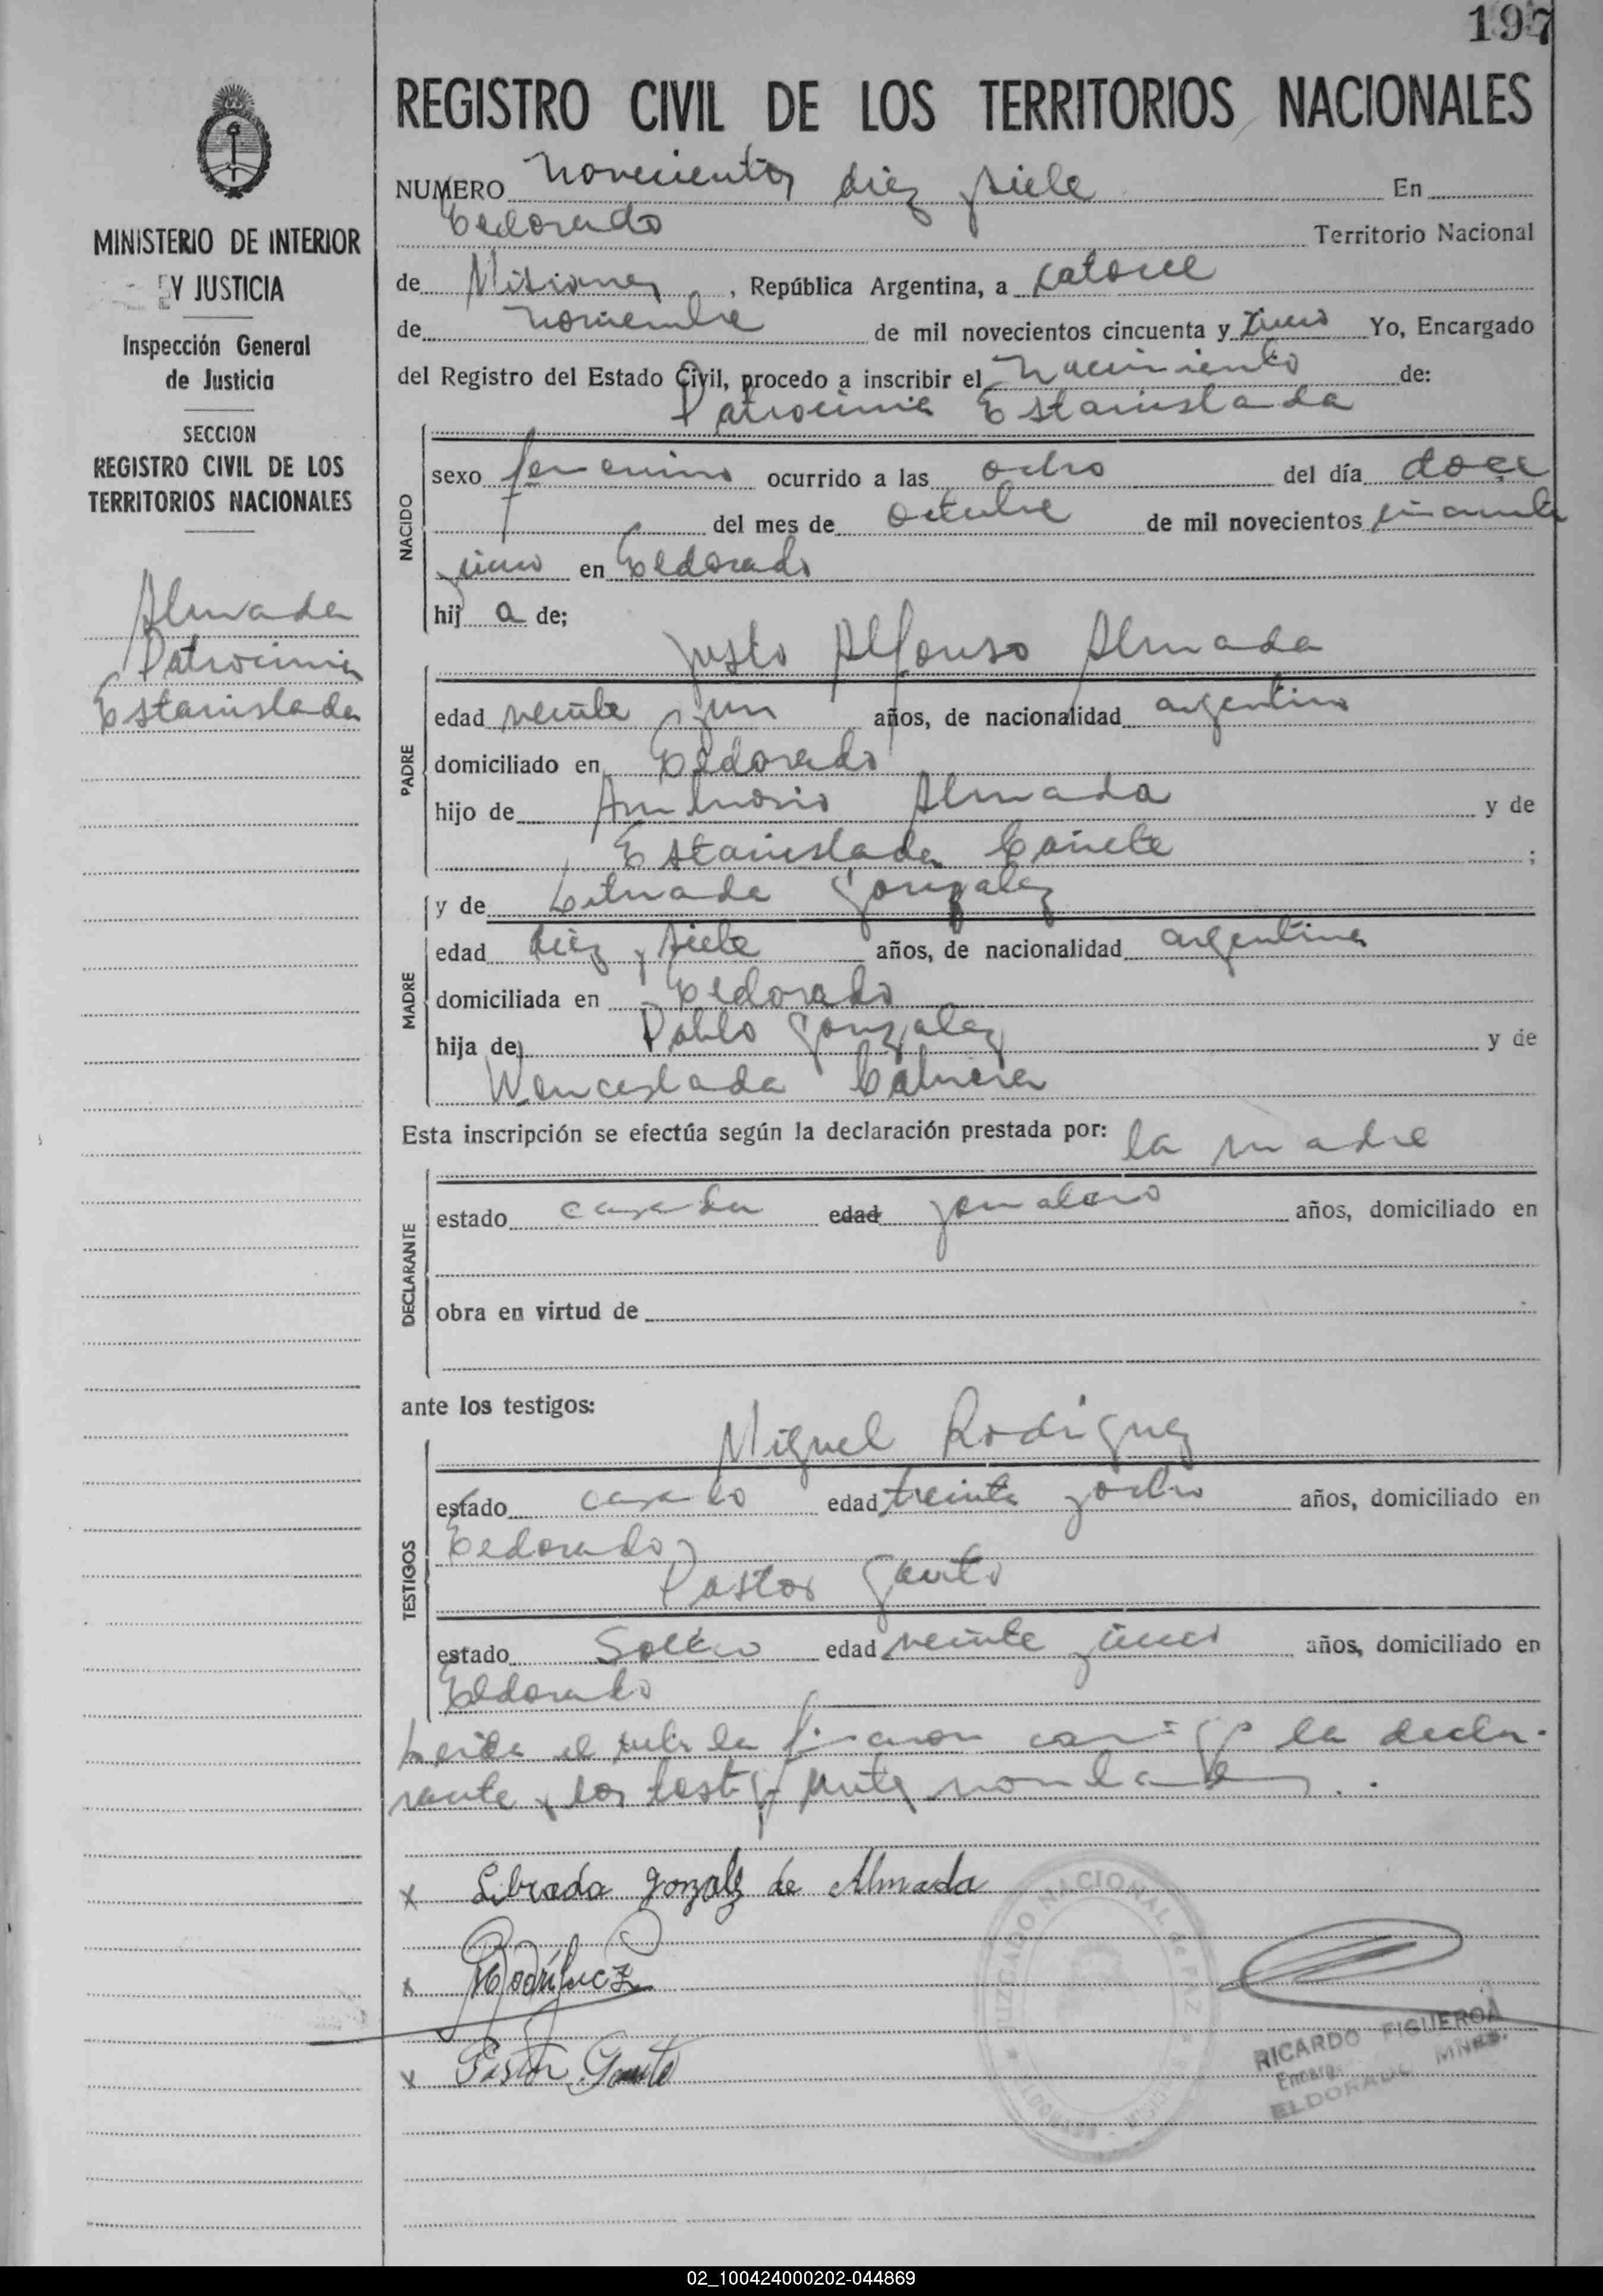 197
REGISTRO CIVIL DE LOS TERRITORIOS NACIONALES
MINISTERIO DE INTERIOR
Y JUSTICIA
Inspección General
de Justicia
SECCION
REGISTRO CIVIL DE LOS
TERRITORIOS NACIONALES
Almada
Patrocinia
Estanislada
NUMERO novecientos diez siete En
Eldorado Territorio Nacional
de Misiones, República Argentina, a catorce
de noviembre de mil novecientos cincuenta y cinco Yo, Encargado
del Registro del Estado Civil, procedo a inscribir el nacimiento de:
Patrocinia Estanislada
NACIDO
sexo femenino ocurrido a las ocho del día doce
del mes de octubre de mil novecientos cincuenta
cinco en Eldorado
hij a de;
Justo Alfonso Almada
PADRE
edad veinte y un años, de nacionalidad argentino
domiciliado en Eldorado
hijo de Ambrosio Almada y de
Estanislada Cañete ;
y de Librada Gonzalez
MADRE
edad diez y siete años, de nacionalidad argentina
domiciliada en Eldorado
hija de Pablo Gonzalez y de
Wenceslada Cabrera
Esta inscripción se efectúa según la declaración prestada por: la madre
DECLARANTE
estado casada edad jornalero años, domiciliado en
obra en virtud de
ante los testigos:
Miguel Rodriguez
TESTIGOS
estado casado edad treinta y ocho años, domiciliado en
Eldorado
Pastor Gauto
estado Soltero edad veinte y cinco años, domiciliado en
Eldorado
Leida el acta la firmaron conmigo la decla-
rante y los testigos antes nombrados.
x Librada Gonzalz de Almada
x Rodríguez
x Pastor Gauto
JUZGADO NACIONAL de PAZ
RICARDO FIGUEROA
Encarg.
ELDORADO MNES.
02_100424000202-044869